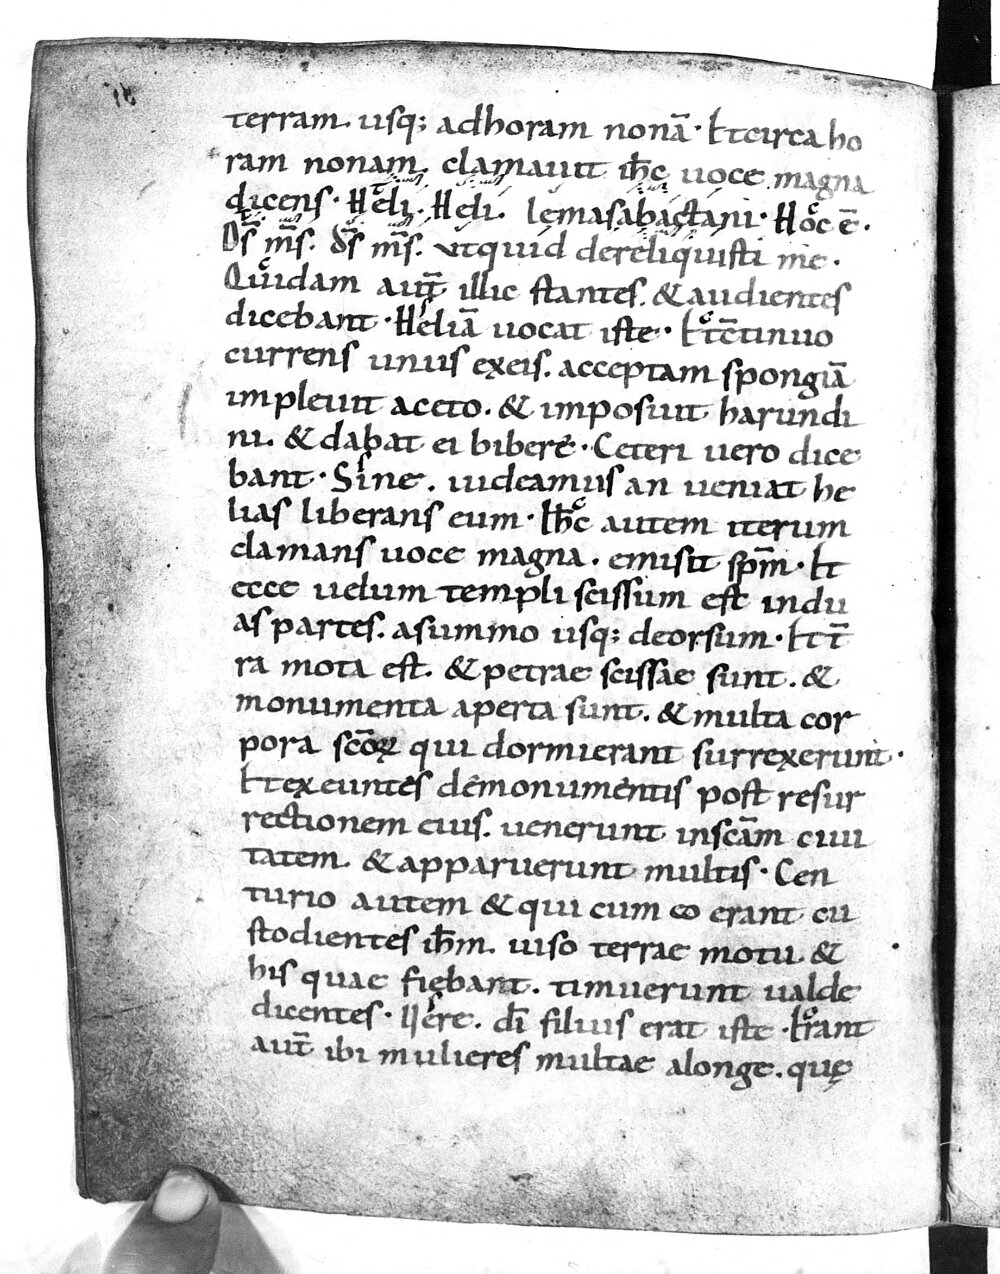 terram. usq; adhoram nonā· Etcirca ho
ram nonam. clamauit ih̄c uoce magna
dicens· Heli. Heli. lemasabactani· Hoc ē·
Ds̄ ms̄. ds̄ ms̄. Vtquid dereliquisti me·
Quidam aut̄ illic stantes. & audientes
dicebant· Heliā uocat iste· Etc̄tinuo
currens unus exeis. acceptam spongiā
impleuit aceto. & imposuit harundi
ni. & dabat ei bibere· Ceteri uero dice
bant· Sine. uideamus an ueniat he
lias liberans eum· Ih̄c autem iterum
clamans uoce magna. emisit sp̄m· Et
ecce uelum templi scissum est indu
as partes. asummo usq; deorsum· Et t̄
ra mota est. & petrae scissae sunt. &
monumenta aperta sunt. & multa cor
pora sc̄oꝝ qui dormierant surrexerunt·
Et exeuntes demonumentis post resur
rectionem eius. uenerunt insc̄am ciui
tatem & apparuerunt multis· Cen
turio autem & qui cum eo erant cu
stodientes ih̄m. uiso terrae motu &
his quae fiebant. timuerunt ualde
dicentes· Uere. dī filius erat iste· Erant
aut̄ ibi mulieres multae alonge. quę